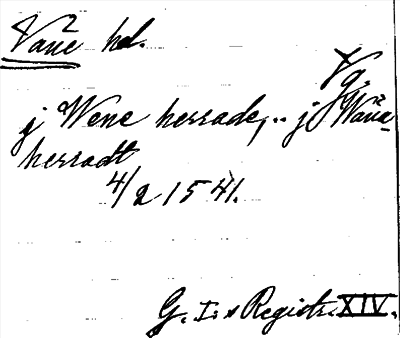 Våne hd.
Vg.
j Wene herrade, .. j Wåna
herradt
4/2 1541.
G. I:s Registr. XIV.